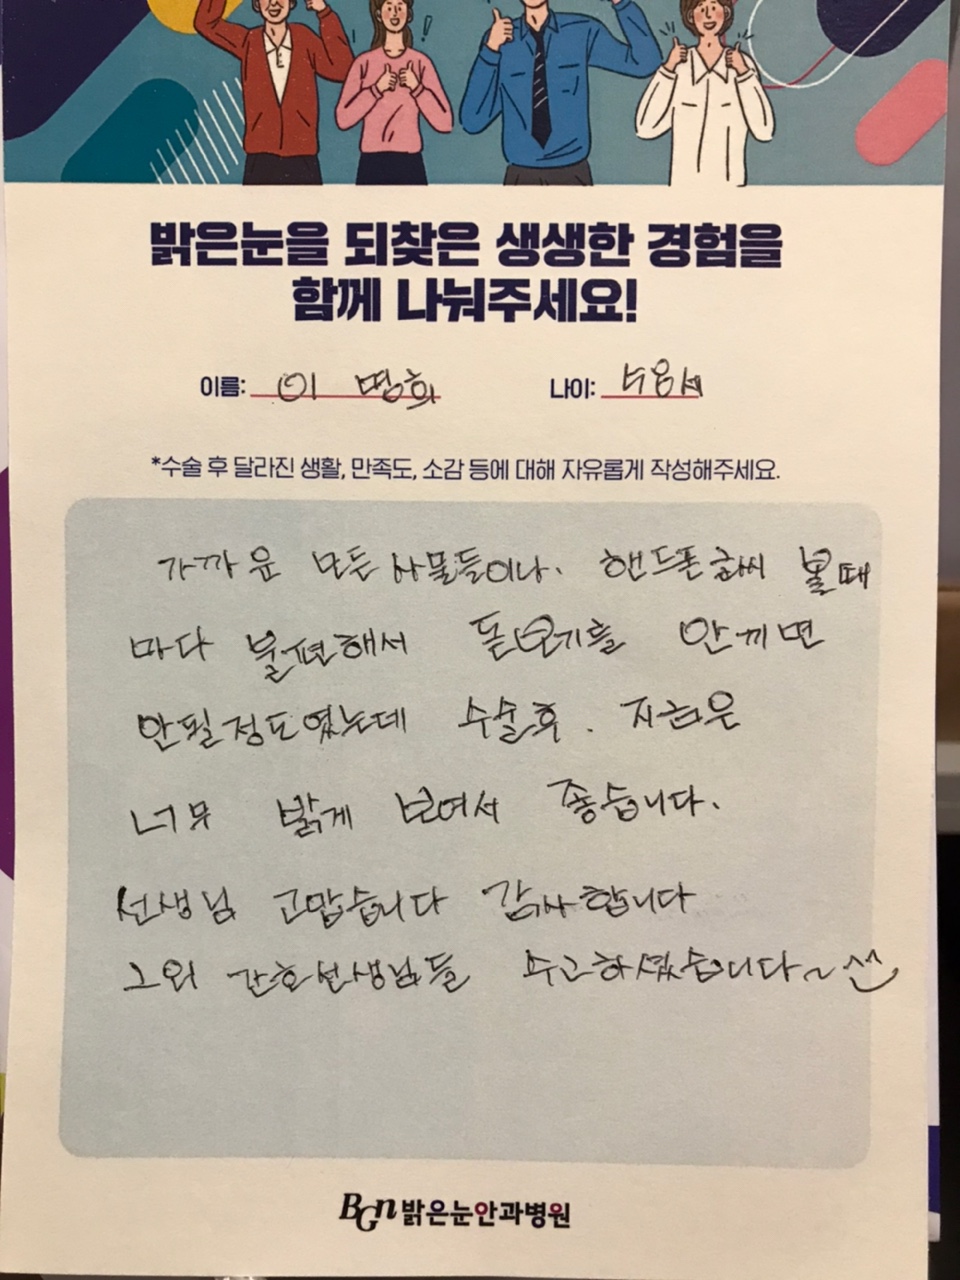 밝은눈을 되찾은 생생한 경험을
함께 나눠주세요!
이름: 이 명희 나이:
*수술 후 달라진 생활, 만족도, 소감 등에 대해 자유롭게 작성해주세요.
가까운 모든 사물들이나. 핸드폰 글씨 볼때
마다 불편해서 돋보기를 안끼면
안될정도였는데 수술후. 지금은
너무 밝게 보여서 좋습니다.
선생님 고맙습니다 감사합니다
그외 간호선생님들 수고하셨습니다~ ^^
BGN 밝은눈안과병원